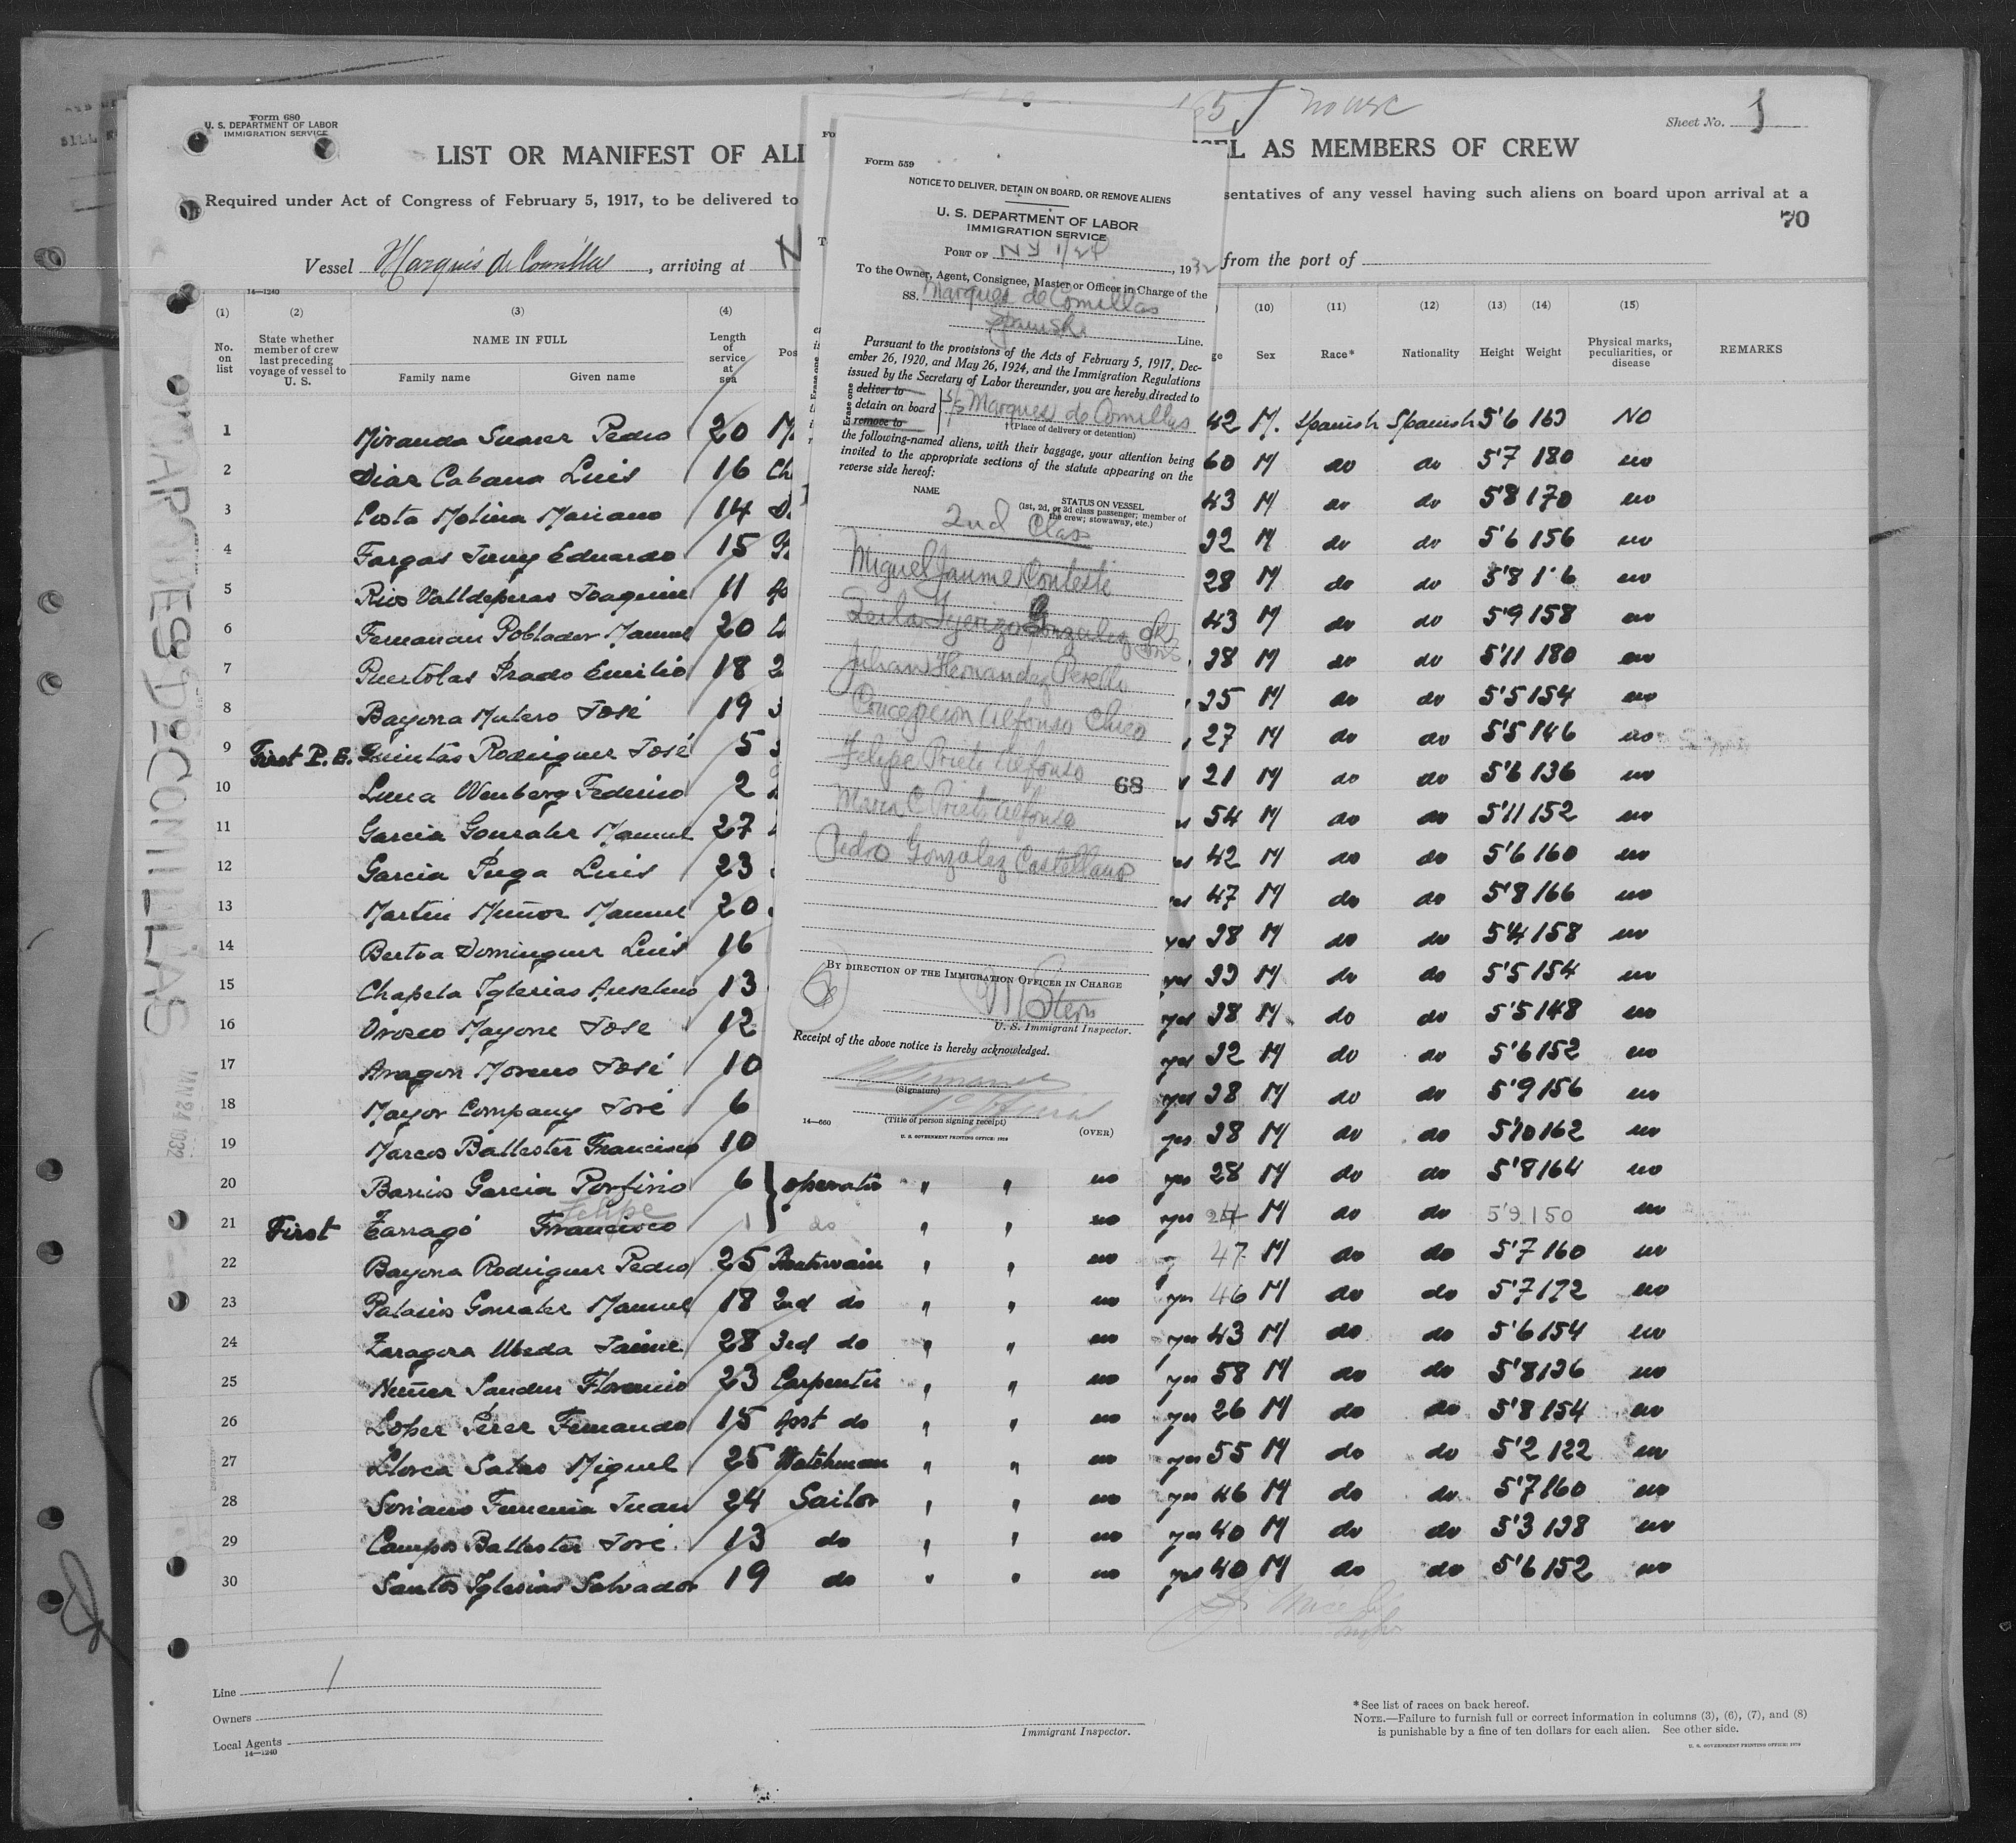 Form 680
U. S. DEPARTMENT OF LABOR
IMMIGRATION SERVICE
no use
Sheet No. 1
LIST OR MANIFEST OF ALI
SEL AS MEMBERS OF CREW
Required under Act of Congress of February 5, 1917, to be delivered to
sentatives of any vessel having such aliens on board upon arrival at a
70
Vessel Marques de Comillas, arriving at N
from the port of
14—1240
(1) (2) (3) (4) (10) (11) (12) (13) (14) (15)
No. on list
State whether member of crew last preceding voyage of vessel to U. S.
NAME IN FULL
Family name Given name
Length of service at sea
Pos
ge
Sex
Race*
Nationality
Height
Weight
Physical marks, peculiarities, or disease
REMARKS
1 Miranda Suarez Pedro 20 42 M. Spanish Spanish 5'6 163 No
2 Diaz Cabana Luis 16 Ch 60 M do do 5'7 180 no
3 Costa Molina Mariano 14 43 M do do 5'8 170 no
4 Fargas Juny Eduardo 15 32 M do do 5'6 156 no
5 Rius Valldeperas Joaquin 11 28 M do do 5'8 no
6 Poblador Manuel 20 43 M do do 5'9 158 no
7 Puertolas Prado Emilio 18 2 38 M do do 5'11 180 no
8 Bayona Mulero José 19 3 35 M do do 5'5 154 no
9 First P. E. Quintas Rodriguez José 5 27 M do do 5'5 146 no
10 Luna Wenberg Federico 2 21 M do do 5'6 136 no
11 Garcia Gonzalez Manuel 27 54 M do do 5'11 152 no
12 Garcia Puga Luis 23 42 M do do 5'6 160 no
13 Martin Muñoz Manuel 20 47 M do do 5'8 166 no
14 Bertoa Dominguez Luis 16 yes 38 M do do 5'4 158 no
15 Chapela Iglesias Anselmo 13 yes 39 M do do 5'5 154 no
16 Orozco Mayone Jose 12 yes 38 M do do 5'5 148 no
17 Aragon Moreno José 10 yes 32 M do do 5'6 152 no
18 Mayor Company José 6 yes 38 M do do 5'9 156 no
19 Marcos Ballester Francisco 10 yes 38 M do do 5'10 162 no
20 Barrios Garcia Porfirio 6 operator " " no yes 28 M do do 5'8 164 no
Felipe
21 First Tarragó Francisco 1 do " " no yes 24 M do do 5'9 150 no
22 Bayona Rodriguez Pedro 25 Boatswain " " no 47 M do do 5'7 160 no
23 Palacios Gonzalez Manuel 18 2nd do " " no yes 46 M do do 5'7 172 no
24 Zaragoza Ubeda Jaime 28 3rd do " " no yes 43 M do do 5'6 154 no
25 Nuñez Sandez Florencio 23 Carpenter " " no yes 58 M do do 5'8 136 no
26 Lopez Perez Fernando 15 Asst do " " no yes 26 M do do 5'8 154 no
27 Llorca Salas Miguel 25 Watchman " " no yes 55 M do do 5'2 122 no
28 Soriano Femenia Juan 24 Sailor " " no yes 46 M do do 5'7 160 no
29 Campos Ballester José 13 do " " no yes 40 M do do 5'3 138 no
30 Santos Iglesias Salvador 19 do " " no yes 40 M do do 5'6 152 no
Line 1
Owners
Local Agents
14—1240
Immigrant Inspector.
*See list of races on back hereof.
NOTE.—Failure to furnish full or correct information in columns (3), (6), (7), and (8)
is punishable by a fine of ten dollars for each alien. See other side.
U. S. GOVERNMENT PRINTING OFFICE: 1929
Form 559
NOTICE TO DELIVER, DETAIN ON BOARD, OR REMOVE ALIENS
U. S. DEPARTMENT OF LABOR
IMMIGRATION SERVICE
PORT OF NY 1/24, 1932
To the Owner, Agent, Consignee, Master or Officer in Charge of the
SS. Marques de Comillas
Spanish Line.
Pursuant to the provisions of the Acts of February 5, 1917, Dec-
ember 26, 1920, and May 26, 1924, and the Immigration Regulations
issued by the Secretary of Labor thereunder, you are hereby directed to
Erase one
deliver to
detain on board S/S Marques de Comillas
remove to
†(Place of delivery or detention)
the following-named aliens, with their baggage, your attention being
invited to the appropriate sections of the statute appearing on the
reverse side hereof:
NAME
STATUS ON VESSEL
(1st, 2d, or 3d class passenger; member of
the crew; stowaway, etc.)
2nd Class
Miguel Jaume Conteste
Gonzalez
Julian Hernandez Perello
Concepcion Alfonso Chico
Felipe Prieto Alfonso
68
Maria C Prieto Alfonso
Pedro Gonzalez Castellano
BY DIRECTION OF THE IMMIGRATION OFFICER IN CHARGE
M Stern
U. S. Immigrant Inspector.
Receipt of the above notice is hereby acknowledged.
(Signature)
(Title of person signing receipt)
14—660
U. S. GOVERNMENT PRINTING OFFICE: 1929
(OVER)
MARQUES DE COMILLAS
JAN 24 1932